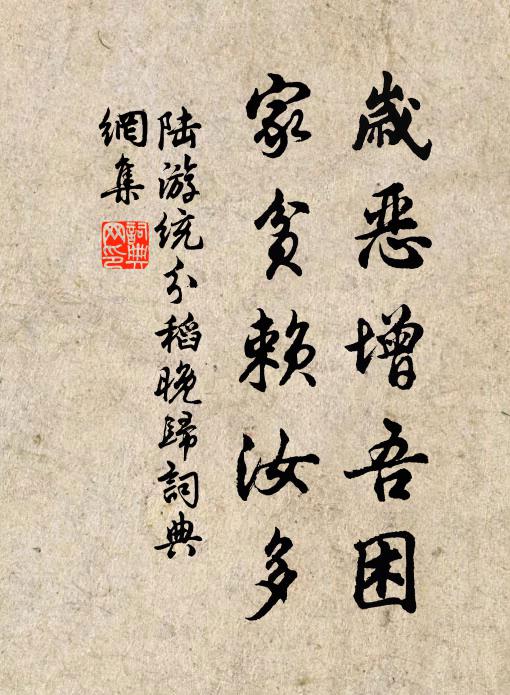 歲惡增吾困
家貧賴汝多
陸游統分稻晚歸詞典
網集
詞典
网印